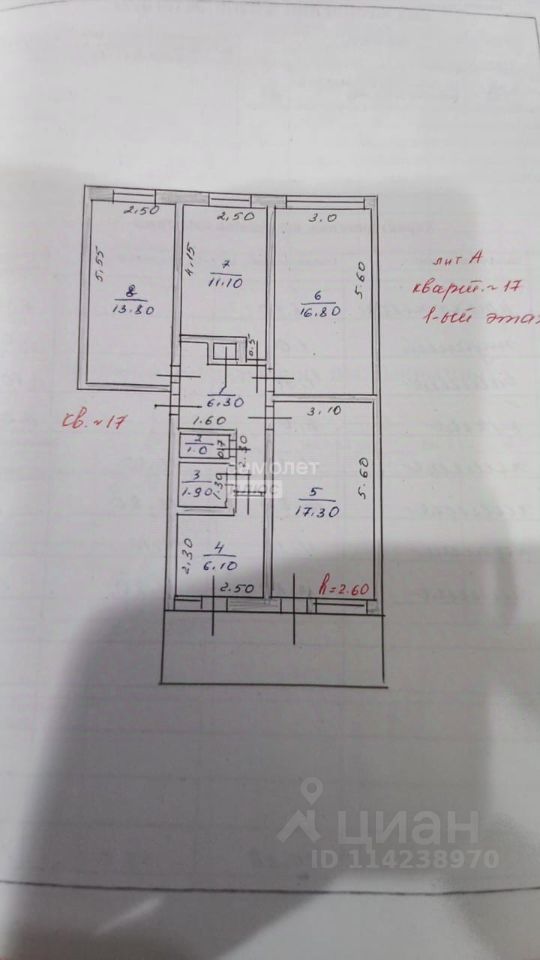 2.50
2.50
3.0
5.55
4.15
5.60
8
13.80
7
11.10
6
16.80
лит А
кварт. № 17
1-ый этаж
0.5
1
6.30
1.60
3.10
кв. № 17
2
1.0
0.7
3
1.90
1.30
5
17.30
5.60
4
6.10
2.30
2.50
h=2.60
самолет
плюс
циан
ID 114238970